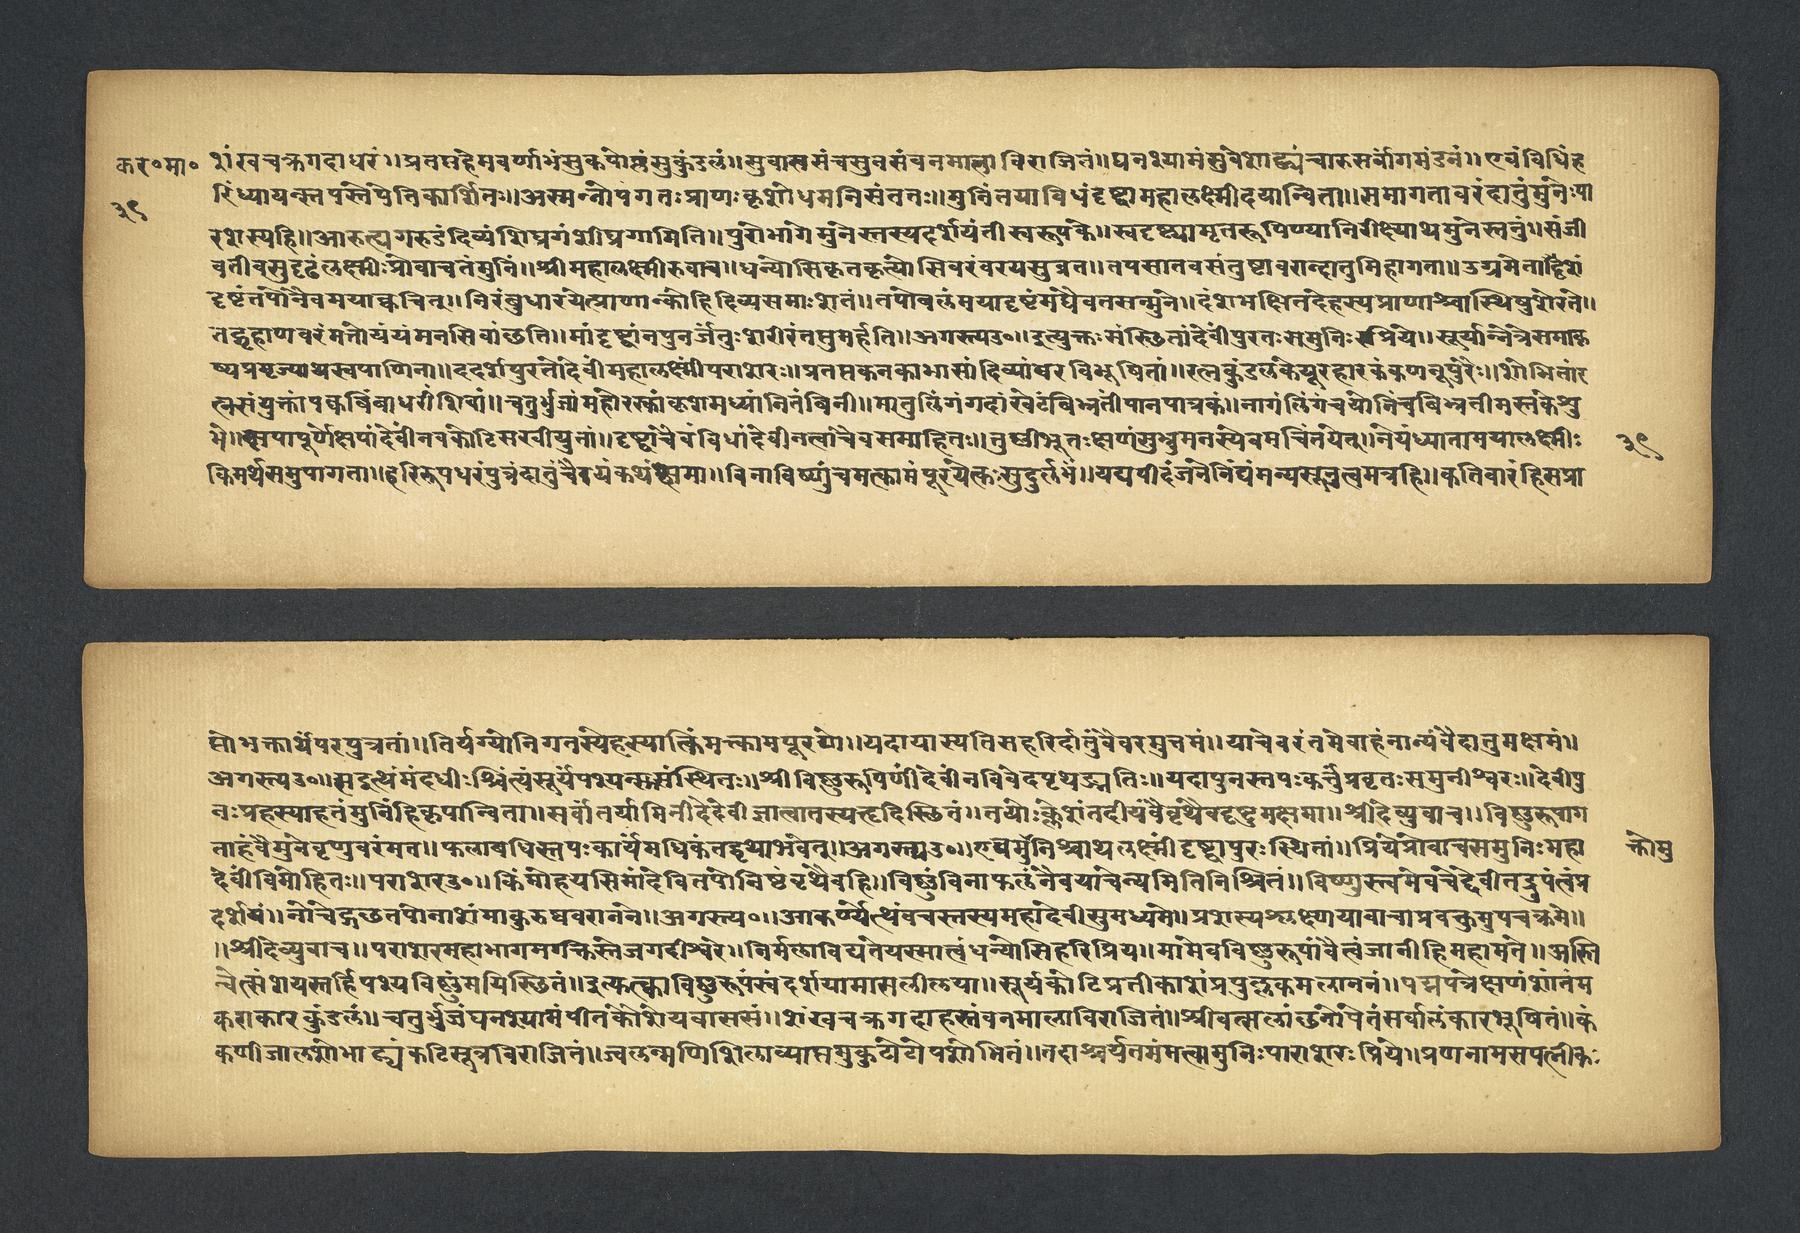 कर॰मा॰
३९
शंखचक्रगदाधरं।।प्रतप्तहेमवर्णाभंसुकपोलंसुकुंडलं।।सुवाससंचसुवसंवनमालाविराजितं।।घनश्यामंसुवेशाढ्यंचारुसर्वांगमंडनं।।एवंविधिंह
रिंध्यायन्स्तपस्तेपेतिकार्शितः।।अस्मन्तोपगतःप्राणःकृशोधमनिसंततः।।मुनिंतयाविधंदृष्ट्वामहालक्ष्मीदयान्विता।।समागतावरंदातुंमुनेःपा
रशस्यहि।।आरुत्द्यगरुडंदिव्यंशिघ्रगंशीघ्रगामिति।।पुरोभागेमुनेस्तस्यदर्शयंतीस्वरूपकं।।स्वदृष्ट्यामृतरूपिण्यानिरीक्ष्याथमुनेस्तनुं।।संजी
वतीवसुदृढंलक्ष्मीःप्रोवाचतंमुनिं।।श्रीमहालक्ष्मीरुवाच।।धन्योसिकृतकृत्योसिवरंवरयसुव्रत।।तपसातवसंतुष्टावरान्दातुमिहागता।।उग्रमेता
दृष्टंतपोनैवमयाक्वचित्।।निरंबुधारयेत्प्राणान्कोहिदिव्यसमाःशतं।।तपोबलंमयादृष्टंमद्यैवतसन्मुने।।दंशभक्षितदेहस्यप्राणाश्चास्थिषुशेरते।।
तद्गृहाणवरंमत्तोयंयंमनसिवांछति।।मांदृष्ट्वांनपुनर्जेतुःशरीरंतप्तुमर्हति।।अगस्त्यउ॰।।इत्युक्तःसंस्छितांदेवींपुरतःसमुनिःप्रिये।।सूर्यान्नेत्रेसमाकृ
ष्यप्रमृज्याथस्वपाणिना।।ददर्शपुरतोदेवींमहालक्ष्मींपराशरः।।प्रतप्तकनकाभासांदिव्यांबरविभूषितां।।रत्नकुंडलकेयूरहारकंकणनूपुरैः।।शोभितांर
त्नसंयुक्तांपक्वबिंबाधरांशिवां।।चतुर्भुजांमहोरस्कांकृशमध्यांनितंबिनी।।मातुलिंगंगदांखेटंबिभ्रतींपानपात्रकं।।नागंलिंगंचयोनिंचबिभ्रतीमस्तकेशु
भे।।कृपापूर्णेक्षपांदेवींनवकोटिसखीयुतां।।दृष्ट्वांचैवंविधांदेवींनत्वांचैवसमाहितः।।तुष्णीभूतःक्षणंसुभ्रुमनस्येवमचिंतयेत्।।नेयंध्यातामयालक्ष्मीः
३९
किमर्थंसमुपागता।।हरिरूपधरंपुत्रंदातुंचैवेयंकथंक्षमा।।विनाविष्णुंचमत्कामंपूरयेत्कःसुदुर्लभं।।यद्यपीदंजनेनिंद्यंमन्यसूनुत्वमत्रहि।।कतिवारंहिसप्रा
प्तोभक्तार्थेपरपुत्रतां।।तिर्यग्योनिगतस्येहस्यात्किंमत्कामपूरणे।।यदायास्यतिसहरिर्दातुंवैवरमुत्तमं।।याचेवरंतमेवाहंनान्यंवैदातुमक्षमं।।
अगस्त्यउ॰।।सइत्थंमंदधीःश्चिंत्यंसूर्यंपश्यन्समंस्थितः।।श्रीविष्णुरूपिणींदेवींनविवेदपृथङ्मतिः।।यदापुनस्तपःकर्त्तुंप्रवृतःसमुनीश्वरः।।देवीपु
नःप्रहस्याहतंमुनिंहिकृपान्विता।।सर्वांतर्यामिनीदेदेवीज्ञात्वातस्यहृदिस्छितं।।तयोःक्लेशंतदीयंवैवृथैवदृष्टुमक्षमा।।श्रीदेव्युवाच।।विष्णुरूपाग
ताहंवैमुनेवृणुवरंमत।।फलावधिस्तपःकार्यंमधिकंतद्वृथाभवेत्।।अगस्त्यउ॰।।एवंमुनिश्चाथलक्ष्मींदृष्ट्वापुरःस्थितां।।प्रियेप्रोवाचसमुनिःमहा
क्तोमु
देवींविमोहितः।।पराशरउ॰।।किंमोहयसिमांदेवितपोनिष्ठंवृथैवहि।।विष्णुंविनाफलंनैवयाचेन्यमितिनिश्चितं।।विष्णुस्त्वमेवचेद्देवीतद्रूपंत्वंप्र
दर्शय।।नोचेद्गच्छतपोनाशंमाकुरुष्ववरानने।।अगस्त्य॰।।आकर्ण्येत्थंवचस्तस्यमहादेवीसुमध्यमे।।प्रशस्यश्लक्ष्णयावाचाप्रवक्तुमुपचक्रमे।।
।।श्रीदेव्युवाच।।पराशरमहाभागमगक्तिस्तेजगदीश्वरे।।निर्मलाविद्यतेयस्मात्वंधन्योसिहरिप्रिय।।मामेवविष्णुरूपांवैत्वंजानीहिमहामते।।अस्ति
चेत्संशयस्तर्हिपश्यविष्णुंमयिस्छितं।।इत्युक्त्वाविष्णुरूपंस्वंदर्शयामासलीलया।।सूर्यकोटिप्रतीकाशंप्रफुल्लकमलाननं।।पद्मपत्रेक्षणंशांतंम
कराकारकुंडलं।।चतुर्भुजंघनश्यामंपीतकौशेयवाससं।।शंखचक्रगदाहस्तंवनमालाविराजितं।।श्रीवत्सलांछनोपेतंसर्वालंकारभूषितं।।कं
कणीजालशोभाढ्यंकटिसूत्रविराजितं।।ज्वलन्मणिशिलाव्याप्तमुकुटाटोपशोभितं।।तदाश्चर्यतमंमत्वामुनिःपाराशरःप्रिये।।प्रणनामसपत्नीकः